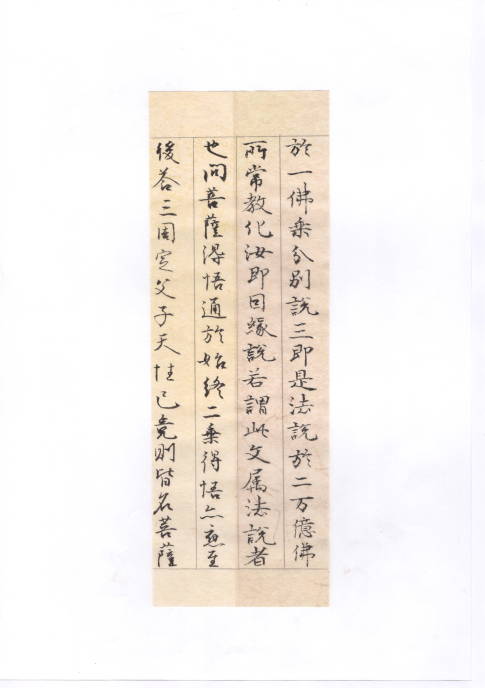 於一佛乗分別說三即是法說於二万億佛
所常教化汝即因緣說若謂此文属法說者
也問菩薩得悟通於始終二乗得悟亦應至
後答三周定父子天性已竟則皆名菩薩